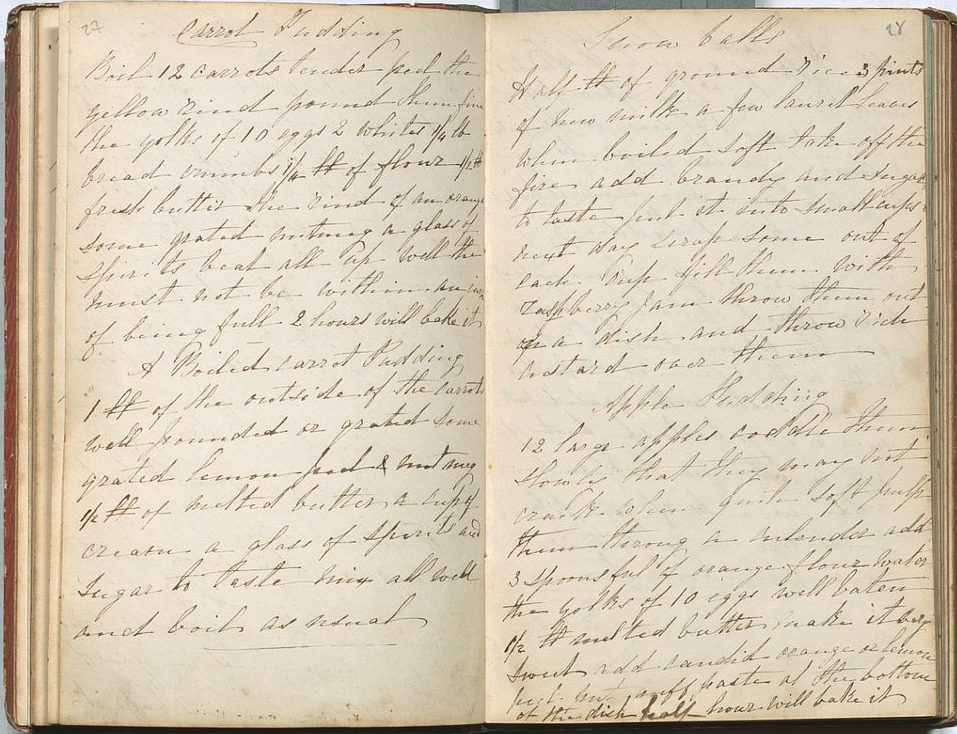 27
Carrot Pudding
Boil 12 carrots tender peel the
yellow rind pound them fine
the yolks of 10 eggs 2 whites 1/4 lb
bread crumbs 1/4 ℔ of flour 1/2 ℔
fresh butter the rind of an orange
some grated nutmeg a glass of
spirits beat all up well the
must not be within an inch
of being full 2 hours will bake it
A Boiled carrot Pudding
1 ℔ of the outside of the carrots
well pounded or grated some
grated lemon peel & nutmeg
1/2 ℔ of melted butter a cup of
cream a glass of spirits and
sugar to taste mix all well
and boil as usual
28
Snow balls
Half ℔ of ground rice 3 pints
of new milk a few laurel leaves
when boiled soft take off the
fire add brandy and sugar
to taste put it into small cups
next day scrap some out of
each cup fill them with
raspberry jam throw them out
on a dish and throw rich
custard over them
Apple Pudding
12 large apples coddle them
slowly that they may not
crack when quite soft pulp
them throug a colender add
3 spoonsful of orange flour water
the yolks of 10 eggs well baten
1/2 ℔ melted butter make it very
sweet add candid orange or lemon
peel puff paste at the bottom
of the dish half hour will bake it